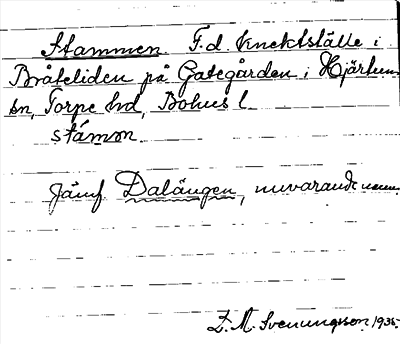 Stammen F.d. knektställe i
Bråteliden på Gategården i Hjärtum
sn, Torpe hd, Bohus l.
stámøn.
Jämf Dalängen, nuvarande namn.
E. M. Svenungsson 1935.